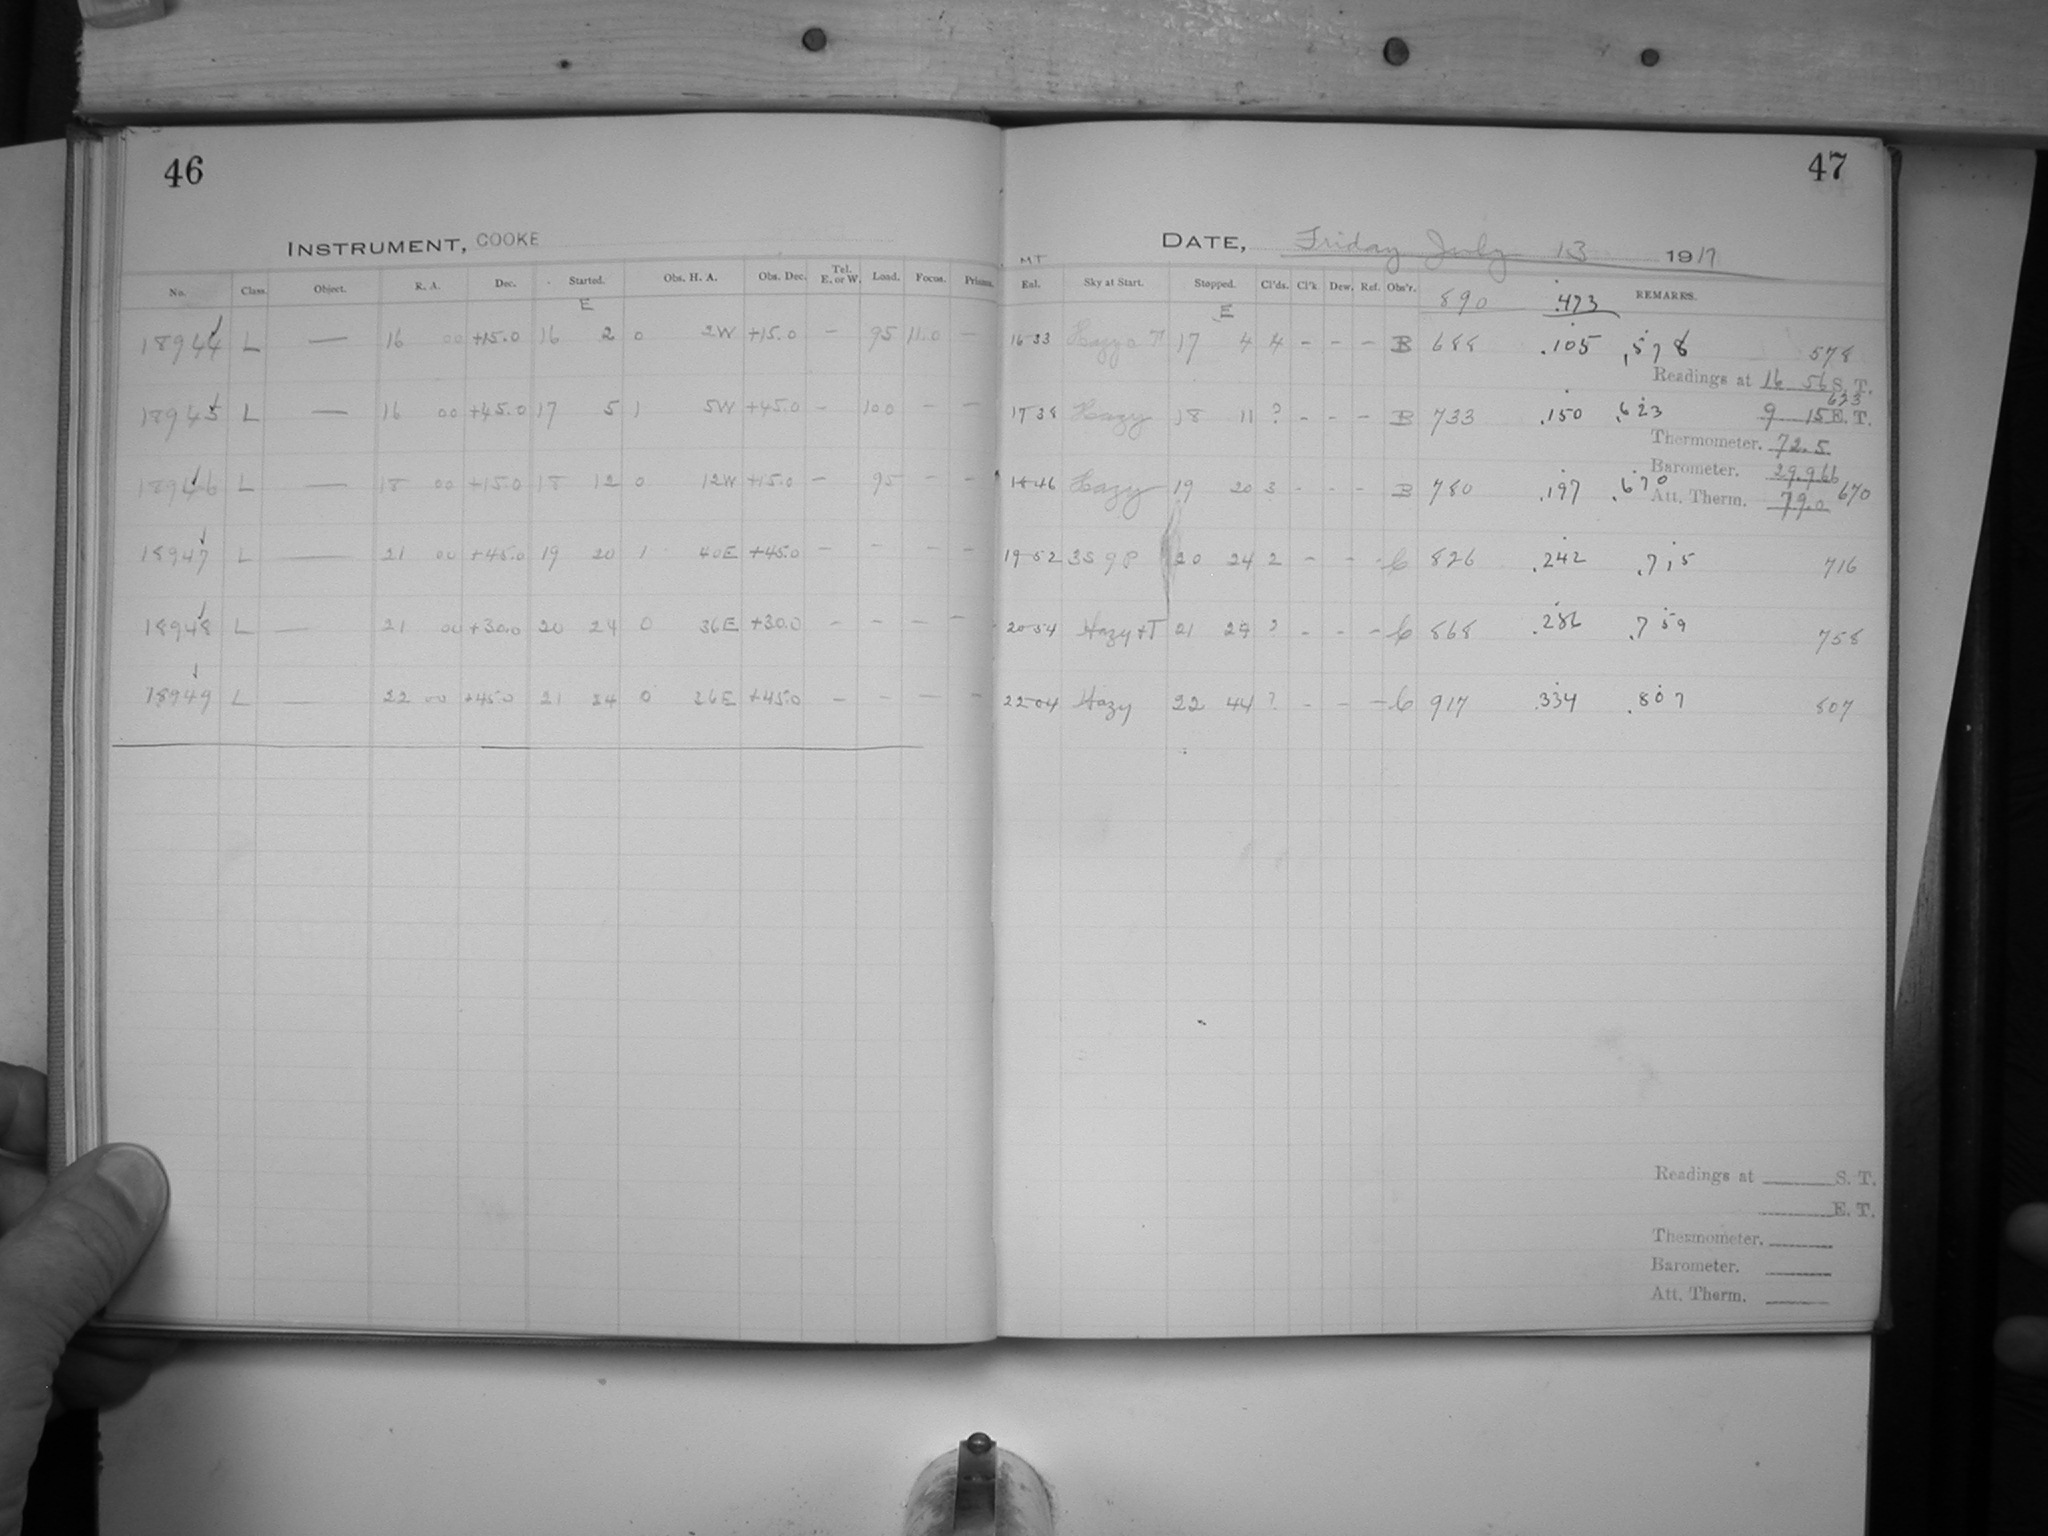 46
INSTRUMENT, COOKE
No. Class. Object. R. A. Dec. Started. Obs. H. A. Obs. Dec. Tel. E. or W. Load. Focus. Prisms.
E
18944 L — 16 00 +15.0 16 2 0 2W +15.0 — 95 11.0 —
18945 L — 16 00 +45.0 17 5 1 5W +45.0 — 100 — —
18946 L — 18 00 +15.0 18 12 0 12W +15.0 — 95 — —
18947 L — 21 00 +45.0 19 20 1 40E +45.0 — — — —
18948 L — 21 00 +30.0 20 24 0 36E +30.0 — — — —
18949 L — 22 00 +45.0 21 34 0 36E +45.0 — — — —
47
DATE, Friday July 13 1917
MT
Eal. Sky at Start. Stopped. Cl'ds. Cl'k Dew. Ref. Obs'r. 890 .473 REMARKS.
E
16 33 17 4 4 - - - B 688 .105 .578 578
Readings at 16 56 S. T.
17 38 Hazy 18 11 ? - - - B 733 .150 .623 623
9 15 E. T.
Thermometer. 72.5
Barometer. 29.966
18 46 Hazy 19 20 3 - - - B 780 .197 .670 670
Att. Therm. 79.0
19 52 3S 9P 20 24 2 - - - C 826 .242 .715 716
20 54 Hazy + T 21 27 ? - - - C 868 .286 .759 758
22 04 Hazy 22 44 ? - - - C 917 .334 .807 807
Readings at S. T.
E. T.
Thermometer.
Barometer.
Att. Therm.